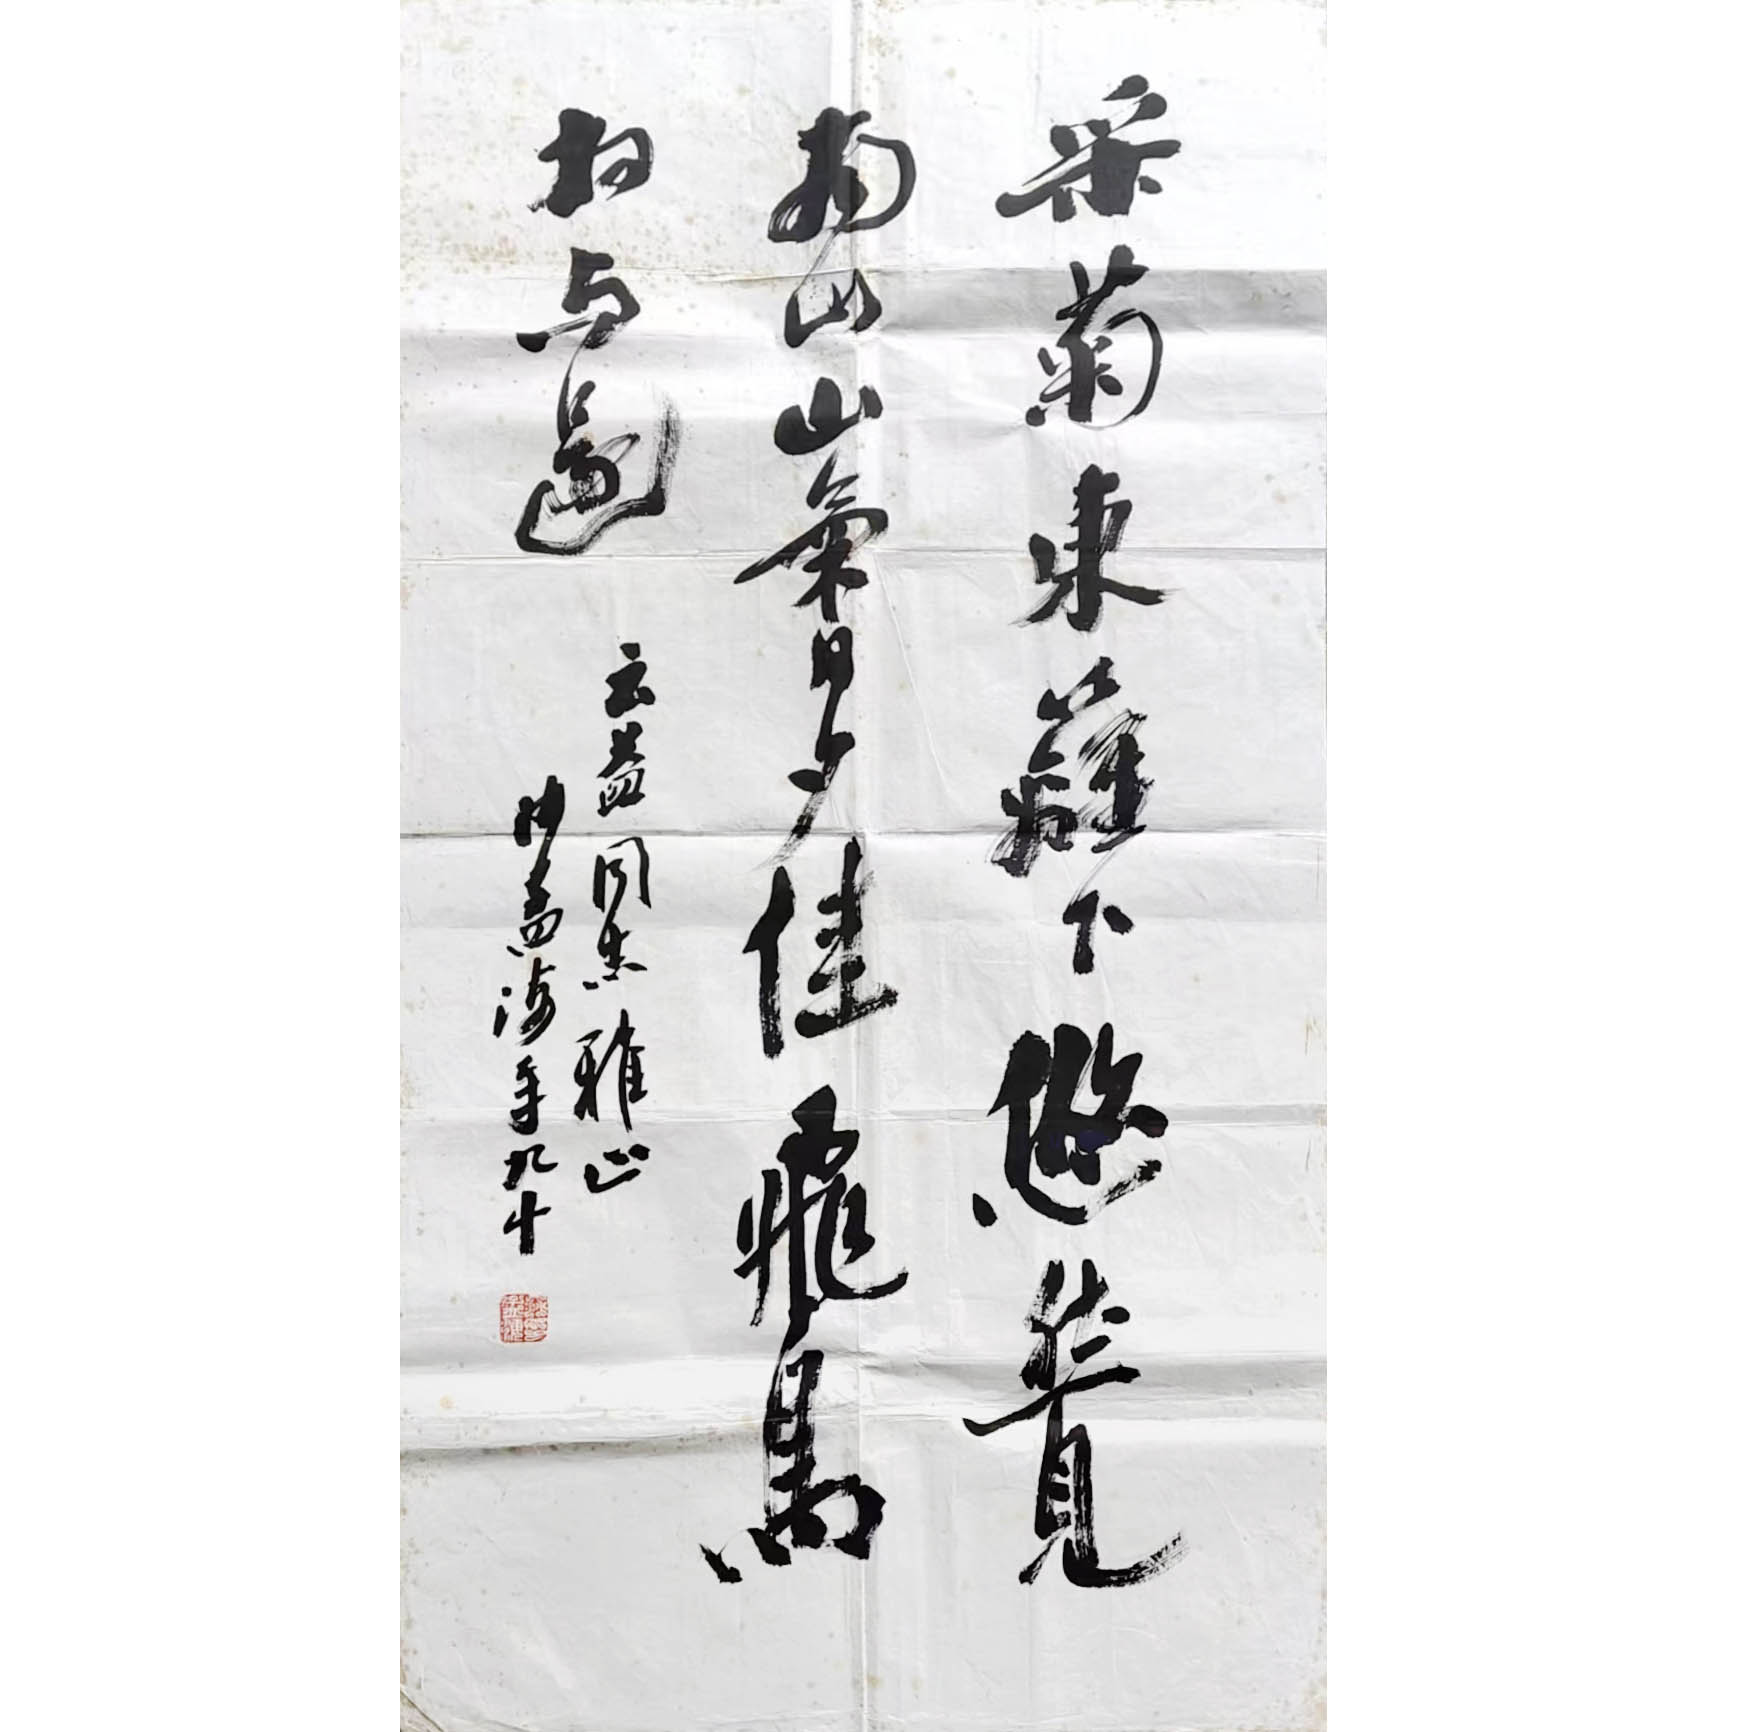 采菊東籬下悠然見
南山山氣日夕佳飛鳥
相与還
云益同志雅正
沙孟海年九十